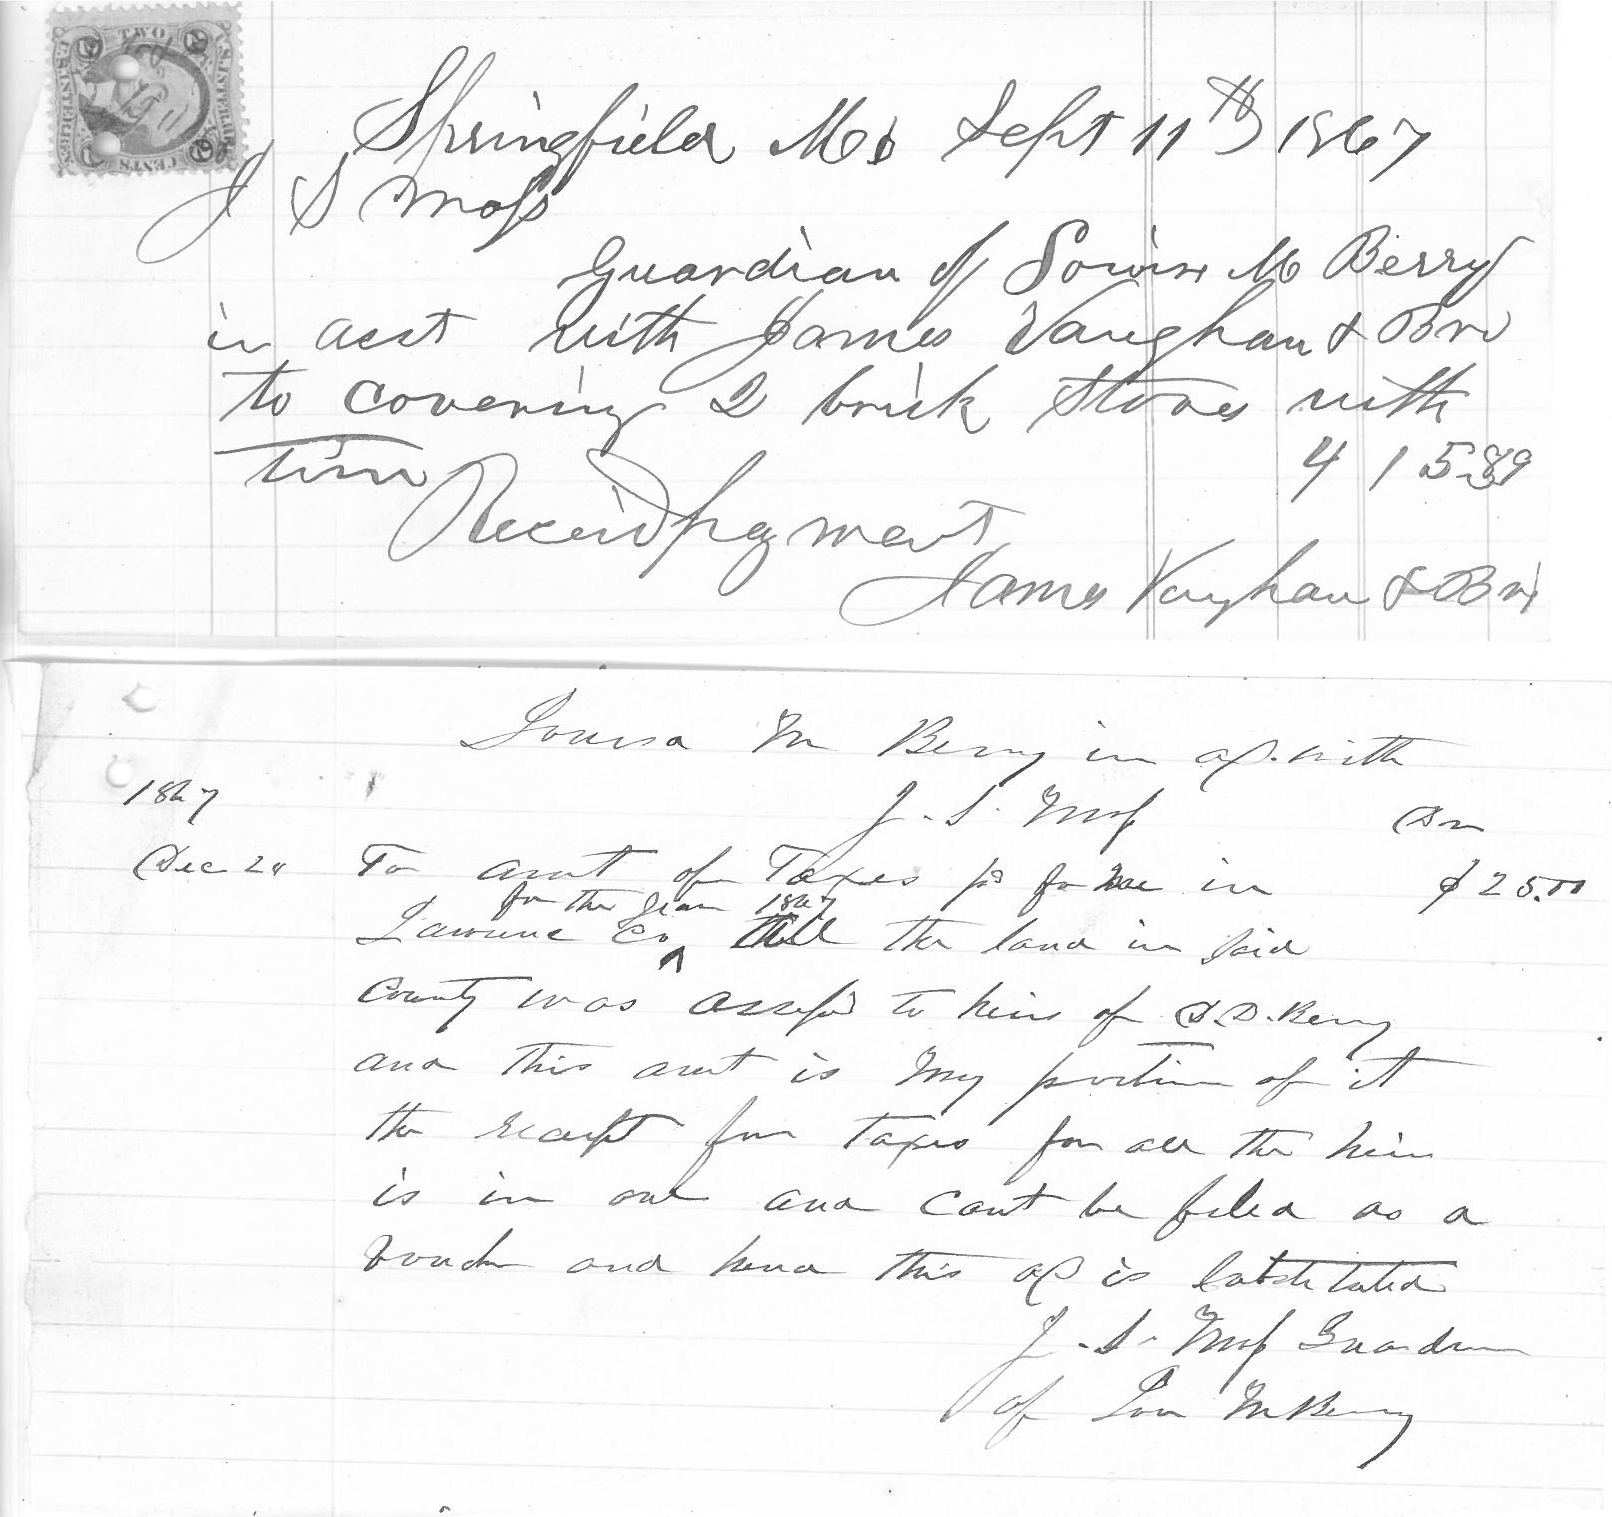 TWO
U.S. INTER. REV.
CENTS
Springfield Mo Sept 11th 1867
J S Moss
Guardian of Louisa M Berry
in acct with James Vaughan & Bro
to covering 2 brick stores with
tinn 415.89
Receivd payment
James Vaughan & Bro
Louisa M Berry in a/c with
1867 J. S. Moss Dr
Dec 20 To amt of Taxes pd for her in $25.00
for the year 1867
Lawrence Co ^ all the land in said
County was assessd to heirs of D. D. Berry
and this amt is my portion of it
the receipt for taxes for all the heirs
is in one and cant be filed as a
voucher and hence this a/c is substituted
J. S. Moss Guardian
of Lou M Berry